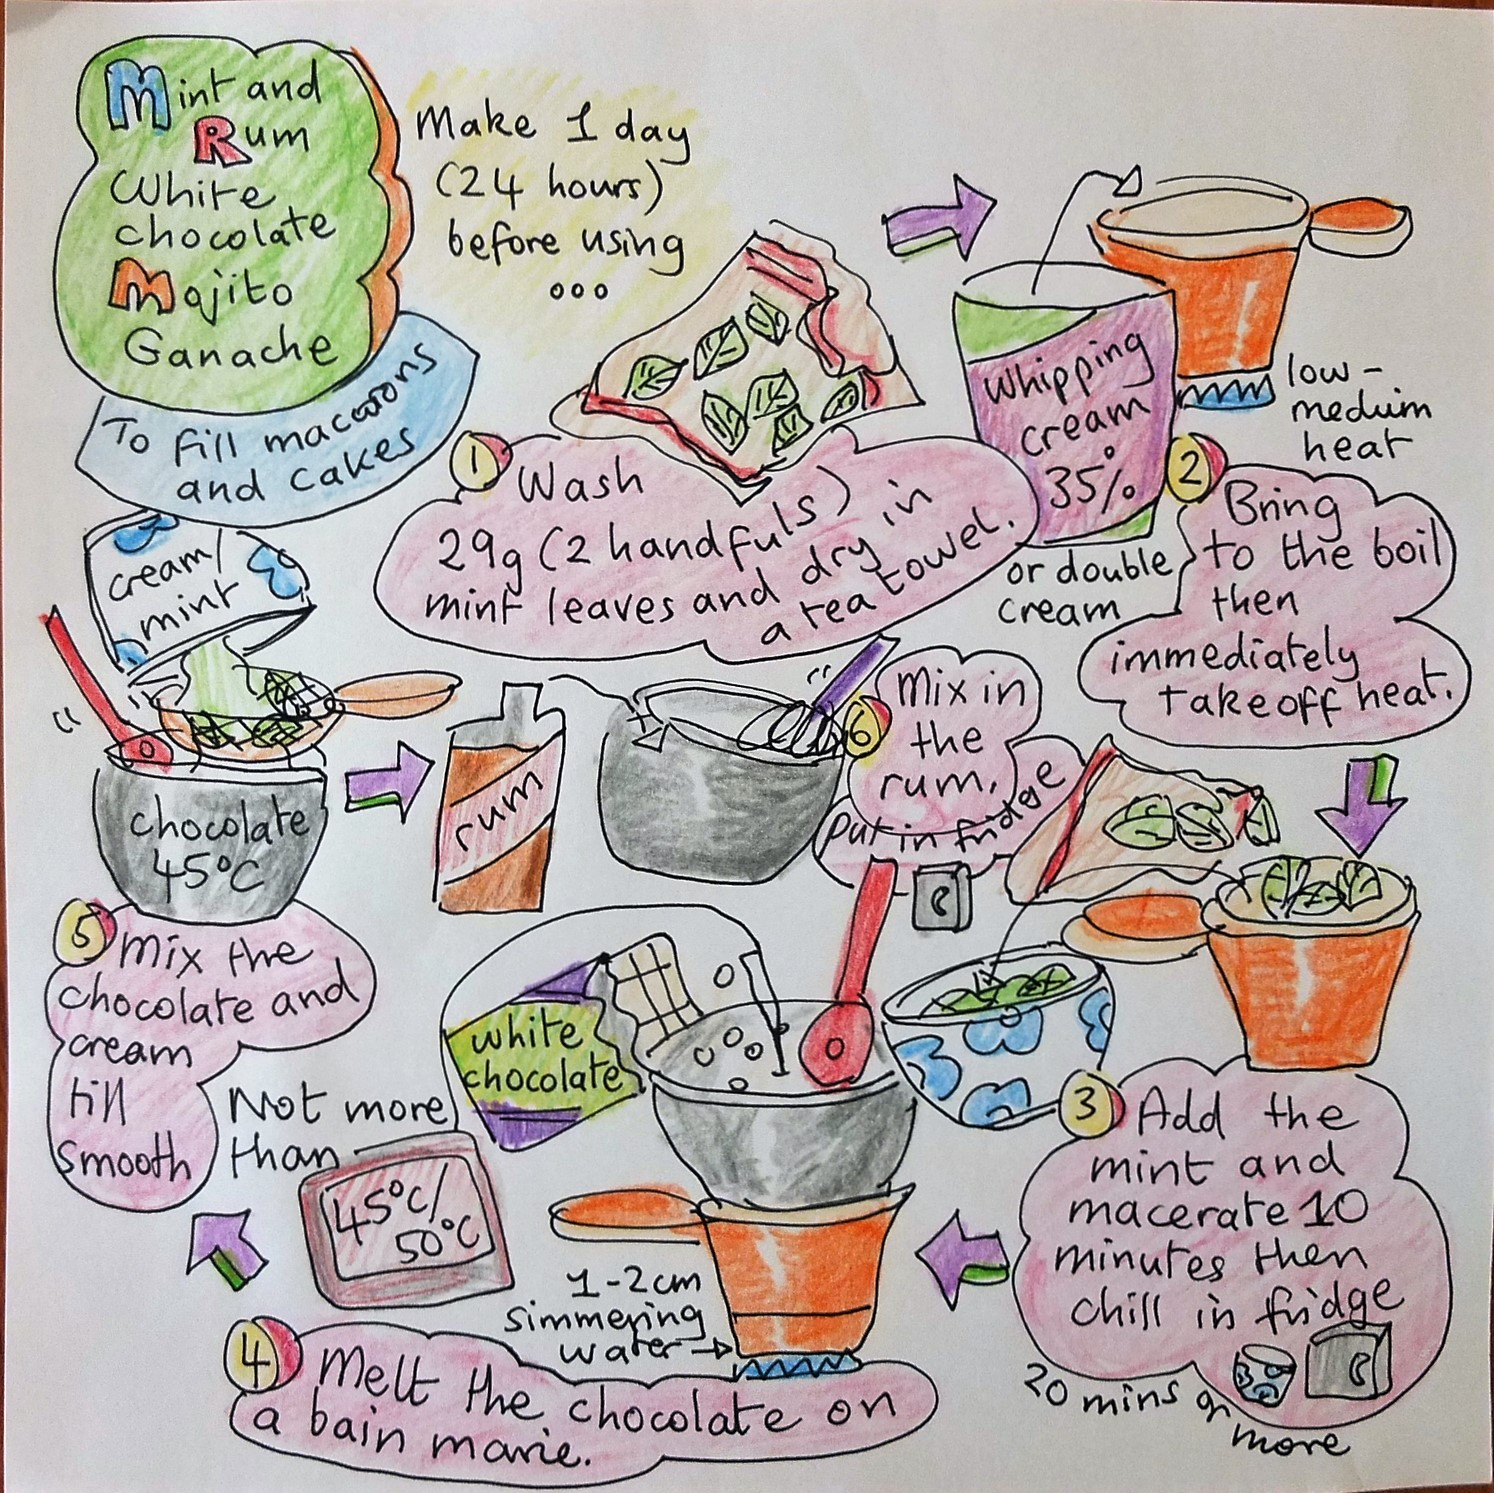 Mint and
Rum
White
chocolate
Mojito
Ganache
To fill macarons
and cakes
Make 1 day
(24 hours)
before using
...
1 Wash
29g (2 handfuls)
mint leaves and dry in
a tea towel.
Whipping
cream
35%
or double
cream
low-
medium
heat
2 Bring
to the boil
then
immediately
take off heat.
3 Add the
mint and
macerate 10
minutes then
chill in fridge
20 mins or
more
white
chocolate
1-2cm
simmering
water
4 Melt the chocolate on
a bain marie.
Not more
than
45°C/
50°C
cream/
mint
chocolate
45°C
5 Mix the
chocolate and
cream
till
smooth
rum
6 Mix in
the
rum.
Put in fridge